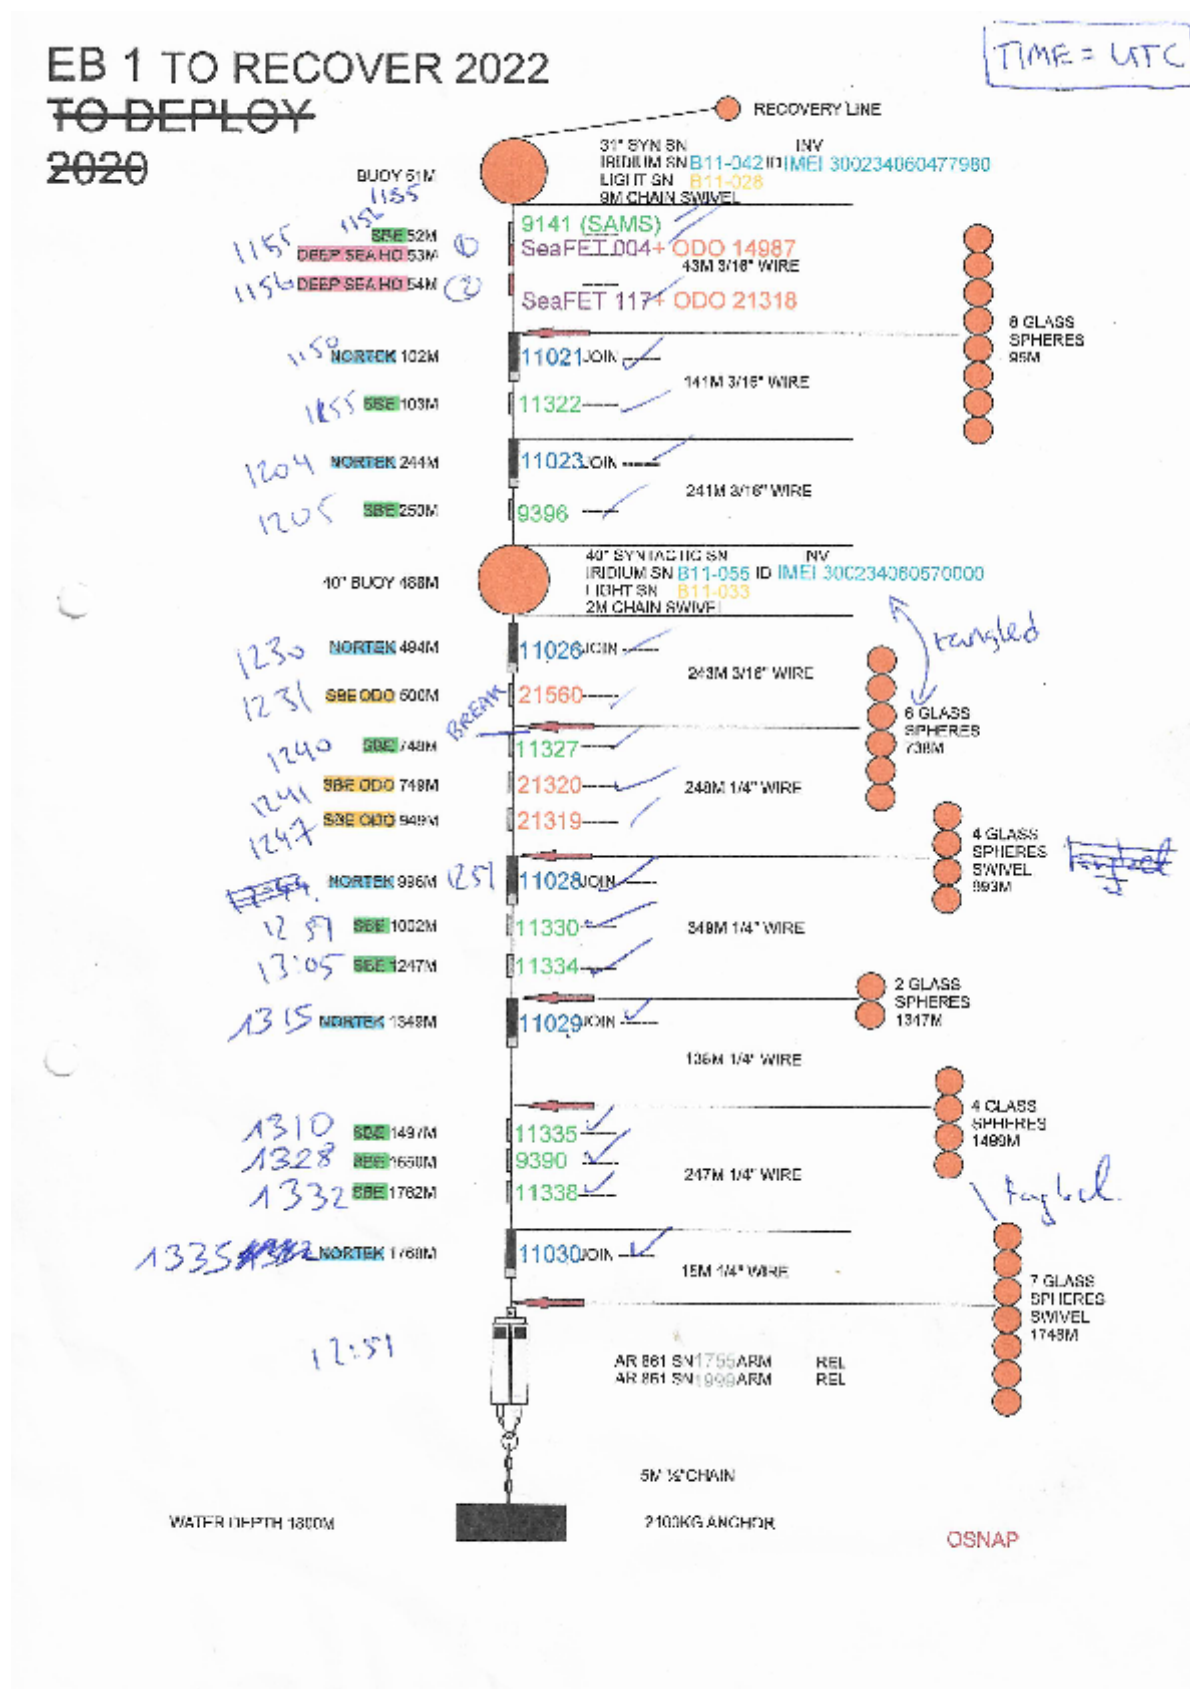 EB 1 TO RECOVER 2022
TO DEPLOY
2020
TIME = UTC
RECOVERY LINE
31" SYN SN INV
IRIDIUM SN B11-042 ID IMEI 300234060477980
LIGHT SN B11-028
9M CHAIN SWIVEL
BUOY 51M
1155
1156 SBE 52M 9141 (SAMS)
1155 DEEP SEA HO 53M ① SeaFET 004+ ODO 14987
43M 3/16" WIRE
1156 DEEP SEA HO 54M ② SeaFET 117+ ODO 21318
8 GLASS
SPHERES
95M
1150 NORTEK 102M 11021 JOIN
141M 3/16" WIRE
1155 SBE 103M 11322
1204 NORTEK 244M 11023 JOIN
241M 3/16" WIRE
1205 SBE 250M 9396
40" SYNTACTIC SN INV
IRIDIUM SN B11-055 ID IMEI 300234060570000
LIGHT SN B11-033
2M CHAIN SWIVEL
40" BUOY 488M
tangled
1230 NORTEK 494M 11026 JOIN
243M 3/16" WIRE
1231 SBE ODO 500M 21560
BREAK
6 GLASS
SPHERES
738M
1240 SBE 748M 11327
1241 SBE ODO 749M 21320
248M 1/4" WIRE
1247 SBE ODO 949M 21319
4 GLASS
SPHERES
SWIVEL
993M
tangled
NORTEK 996M 1257 11028 JOIN
1259 SBE 1002M 11330
349M 1/4" WIRE
13:05 SBE 1247M 11334
2 GLASS
SPHERES
1347M
1315 NORTEK 1349M 11029 JOIN
135M 1/4" WIRE
4 GLASS
SPHERES
1489M
1310 SBE 1497M 11335
1328 SBE 1650M 9390
247M 1/4" WIRE
1332 SBE 1762M 11338
tangled.
1335 1332 NORTEK 1768M 11030 JOIN
15M 1/4" WIRE
7 GLASS
SPHERES
SWIVEL
1748M
12:51
AR 861 SN 1755 ARM REL
AR 861 SN 1999 ARM REL
5M ½" CHAIN
WATER DEPTH 1800M
2100KG ANCHOR
OSNAP